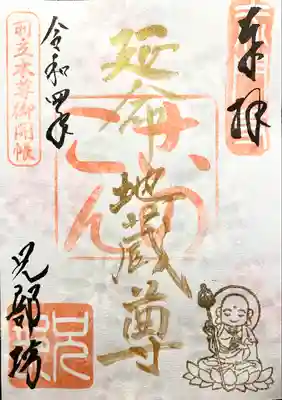 奉拝
延命地蔵尊
令和四年
前立本尊御開帳
兄部坊